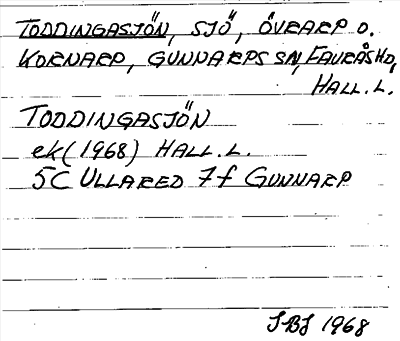 TODDINGASJÖN, SJÖ, ÖVRARP O.
KORNARP, GUNNARPS SN, FAURÅS HD,
HALL.L.
TODDINGASJÖN
ek(1968) HALL.L.
5C ULLARED 7f GUNNARP
SBJ 1968